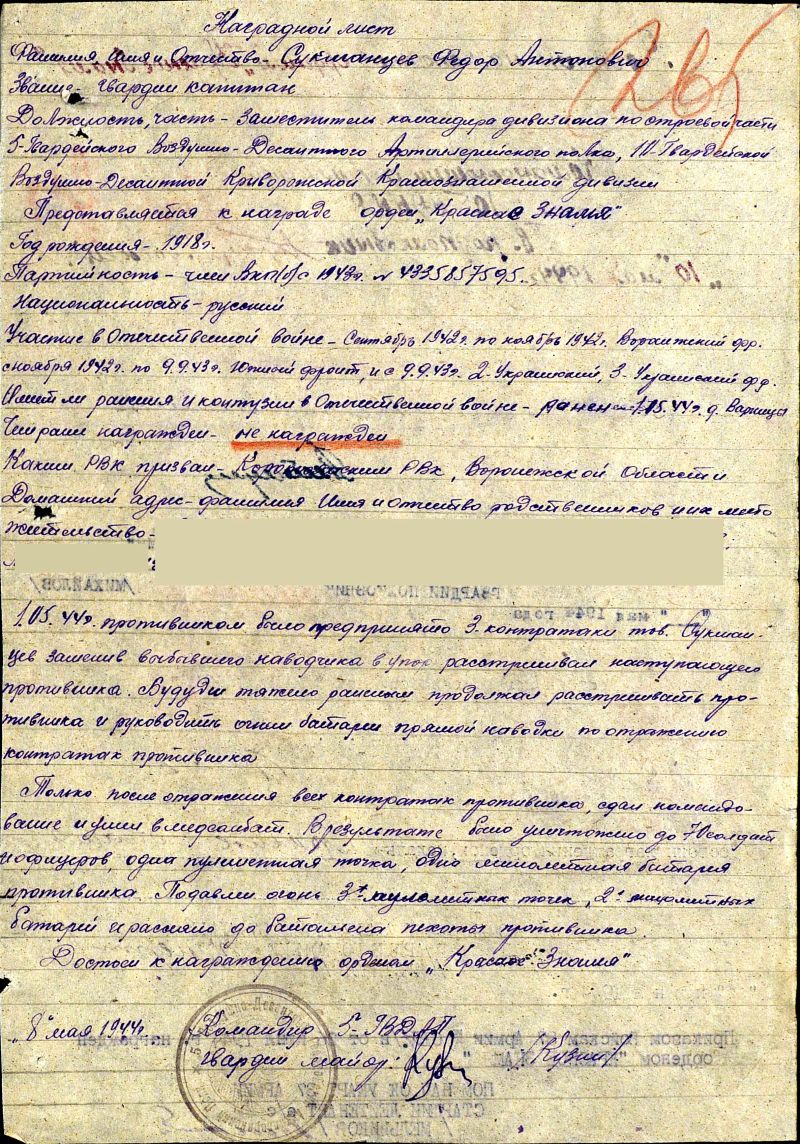 Наградной лист
Фамилия, Имя и Отчество - Сукманцев Федор Антонович
Звание - гвардии капитан
Должность, часть - Заместитель командира дивизиона по строевой части
5-Гвардейского Воздушно-Десантного Артиллерийского полка, 10-Гвардейской
Воздушно-Десантной Криворожской Краснознаменной дивизии
Представляется к награде орден "Красное Знамя"
Год рождения - 1918г.
Партийность - член ВКП(б) с 1943г. N 4335857595.
Национальность - русский
Участие в Отечественной войне - Сентябрь 1942г. по ноябрь 1942г. Воронежский фр.
с ноября 1942г. по 9.9.43г. Южный фронт, и с 9.9.43г. 2-Украинский, 3-Украинский фр.
Имеет ли ранения и контузии в Отечественной войне - ранен 1.05.44г. д. Варница
Чем ранее награжден - не награжден
Каким РВК призван - РВК, Воронежской Области
Домашний адрес - фамилия Имя и отчество родственников и их место
жительство -
ГВАРДИИ ПОЛКОВНИК /МИХАЙЛОВ/
" " мая 1944 года
1.05.44г. противником было предпринято 3 контратаки тов. Сукман-
цев заменив выбывшего наводчика в упор расстреливал наступающего
противника. Будучи тяжело раненым продолжал расстреливать про-
тивника и руководить огнем батареи прямой наводки по отражению
контратак противника
Только после отражения всех контратак противника, сдал командо-
вание и ушел в медсанбат. В результате было уничтожено до 70 солдат
и офицеров, одна пулеметная точка, одна минометная батарея
противника. Подавлен огонь 3х пулеметных точек, 2х минометных
батарей и рассеяно до батальона пехоты противника.
Достоен к награждению орденом "Красное Знамя"
"8" мая 1944г. Командир 5-ГВДАП
гвардии майор: /Кузин/